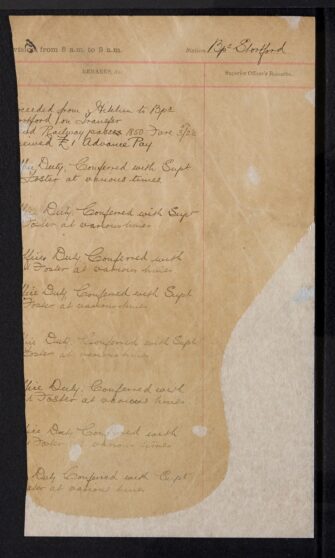 from 8 a.m. to 9 a.m. Station Bps Stortford
REMARKS, &c. Superior Officer's Remarks.
from Hitchin to Bps
on Transfer
Railway 1850 Fare
£1 Advance Pay
Duty, Conferred with Supt
Foster at various times
Duty Conferred with Supt
Foster at various times
Office Duty Conferred with
Foster at various times
Duty Conferred with Supt
Foster at various times
Duty Conferred with Supt
Foster at various times
Duty. Conferred with
Foster at various times.
Duty Conferred with
Foster at various times
Duty Conferred with Supt
at various times